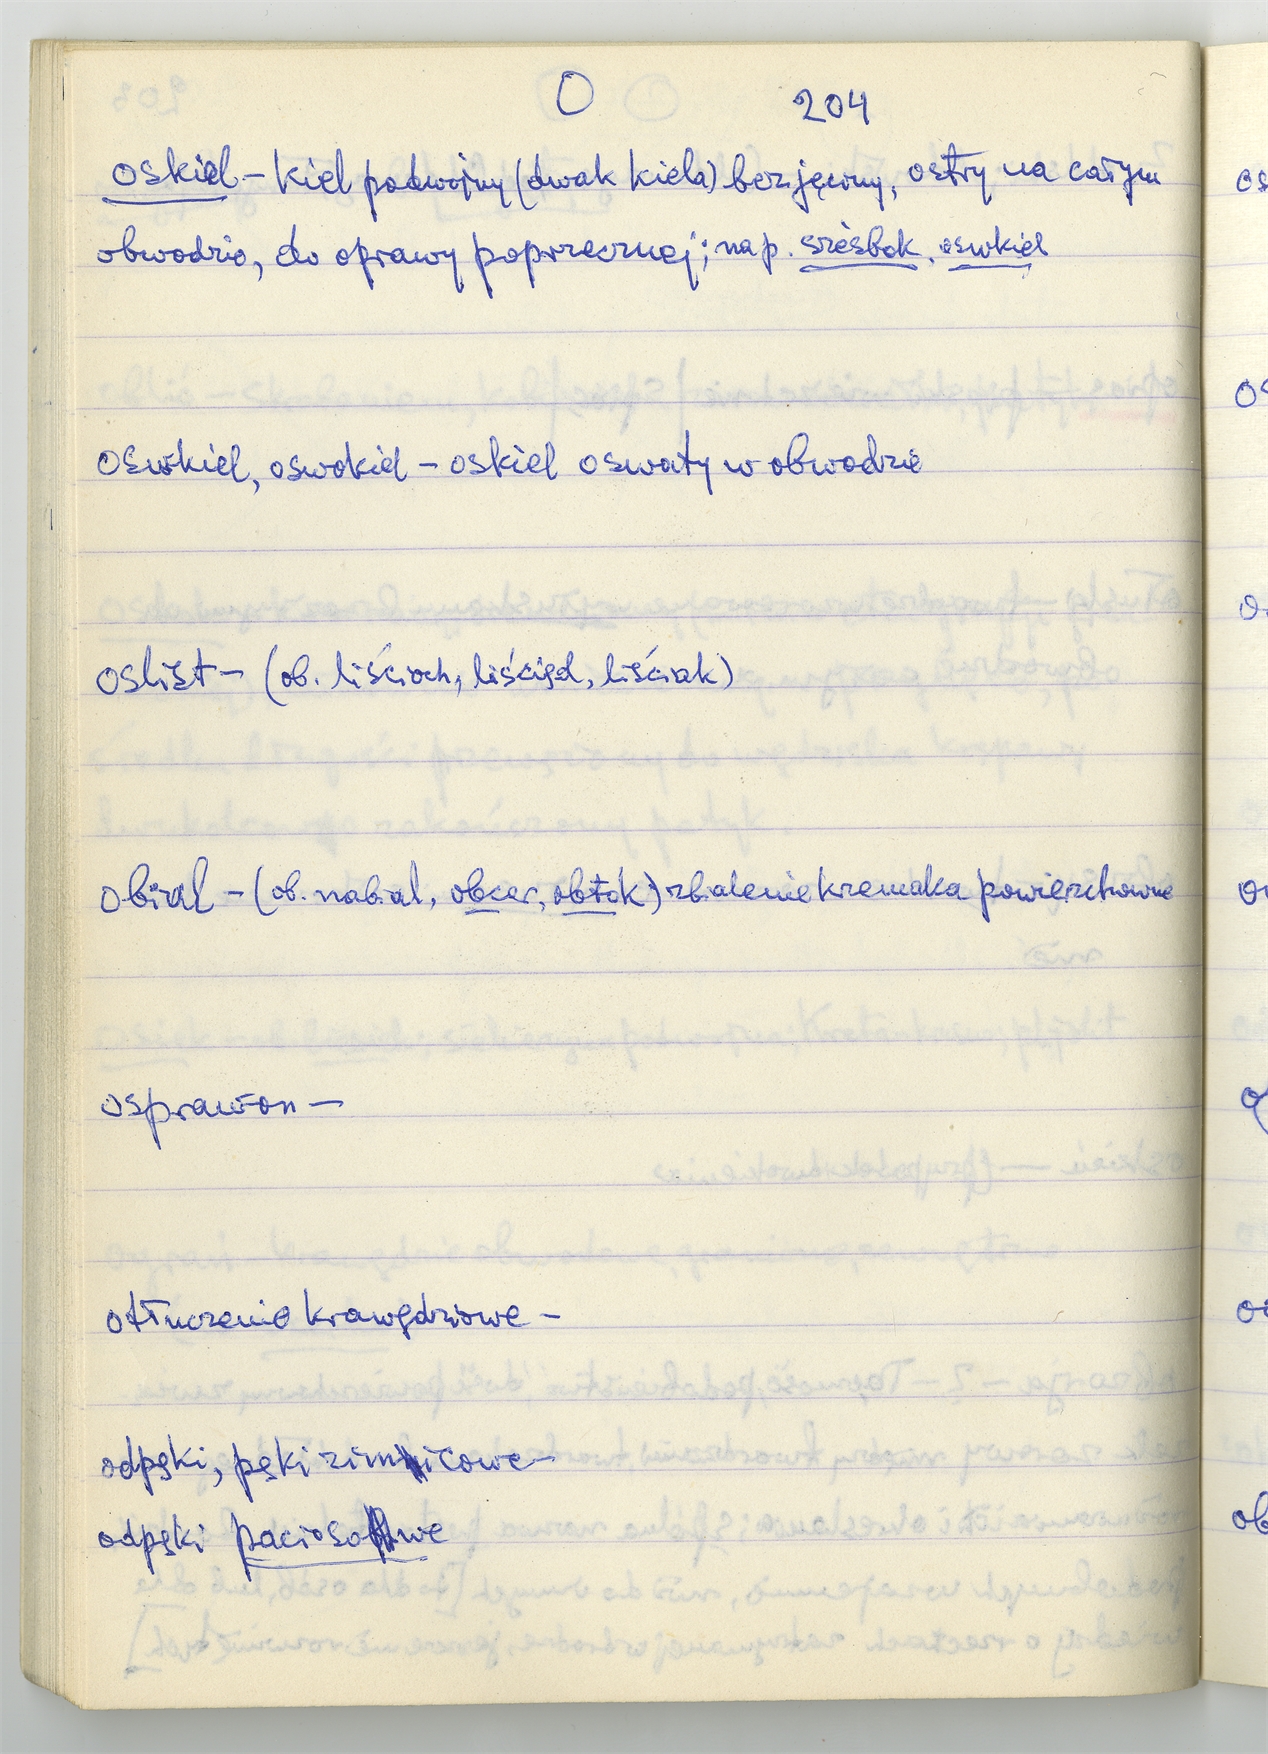 O 204
oskiel – kiel podwójny (dwak kiela) bezjęcmy, ostry na całym
obwodzie, do oprawy poprzecznej; nap. sześbok, oswkiel
oswkiel, oswokiel – oskiel oswaty w obwodzie
oslist – (ob. liścioch, liściel, liściak)
obial – (ob. nabial, obcer, obtok) zbielenie krzemaka powierzchowne
osprawion –
otłuczenie krawędziowe –
odpęki, pęki zimnicowe –
odpęki paciosowe